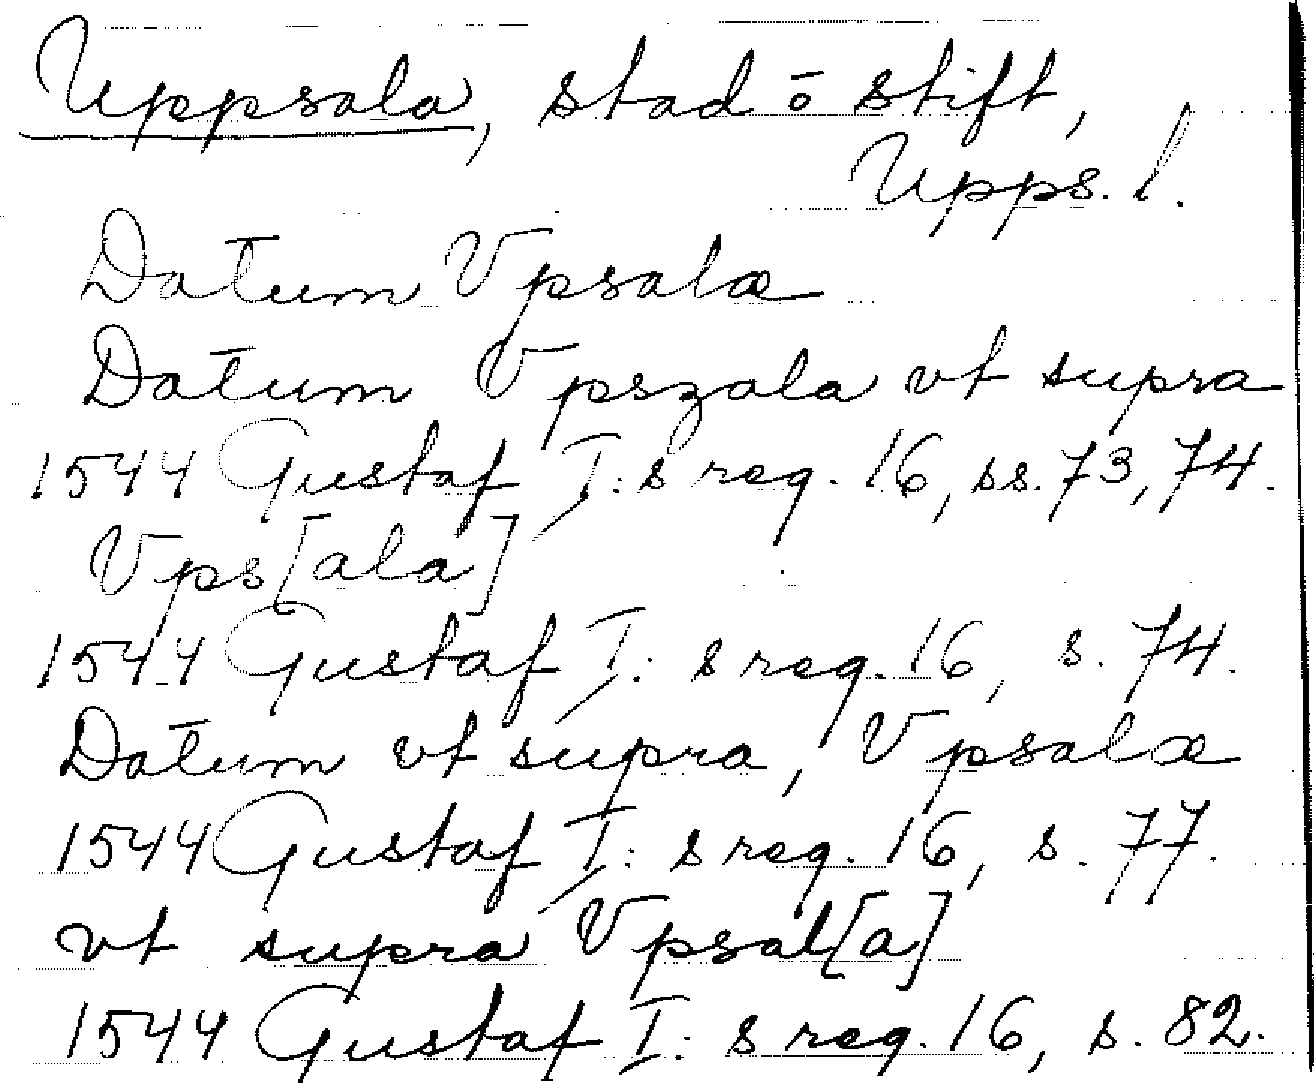 Uppsala, stad o stift,
Upps. l.
Datum Vpsalæ
Datum Vpszala vt supra
1544 Gustaf I: s reg. 16, ss. 73, 74.
Vps[ala]
1544 Gustaf I: s reg. 16, s. 74.
Datum vt supra, Vpsalæ
1544 Gustaf I: s reg. 16, s. 77.
vt supra Vpsal[a]
1544 Gustaf I: s reg. 16, s. 82.